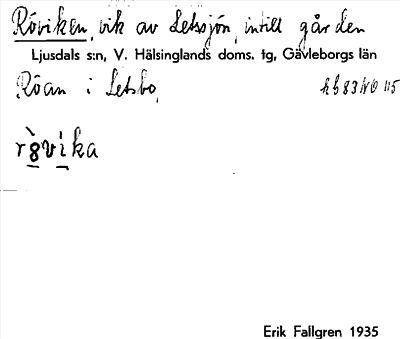 Röviken, vik av Letssjön, intill gården
Ljusdals s:n, V. Hälsinglands doms. tg, Gävleborgs län
Röan i Letsbo.
rò̱vi̱ka
Erik Fallgren 1935